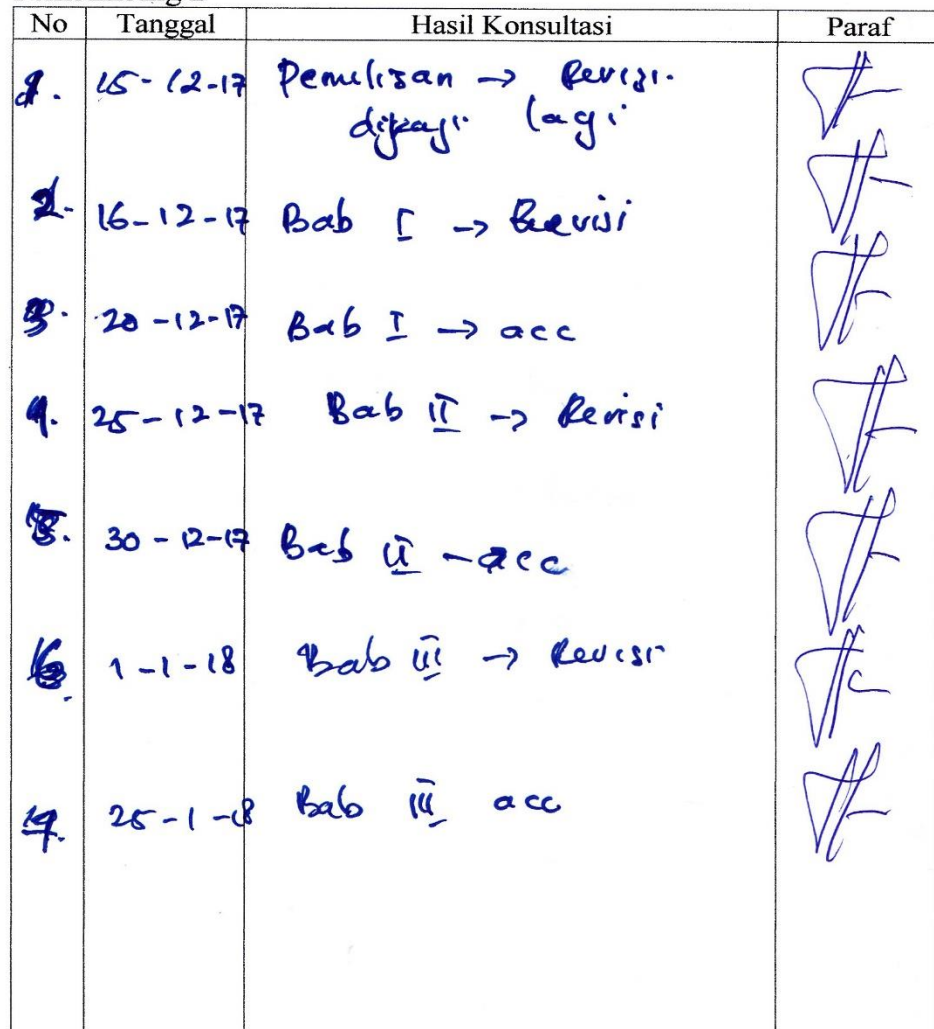 No Tanggal Hasil Konsultasi Paraf
1. 15-12-17 Penulisan → Revisi.
dikaji lagi
2. 16-12-17 Bab I → Revisi
3. 20-12-17 Bab I → acc
4. 25-12-17 Bab II → Revisi
5. 30-12-17 Bab II - acc
6. 1-1-18 Bab III → Revisi
7. 25-1-18 Bab III acc